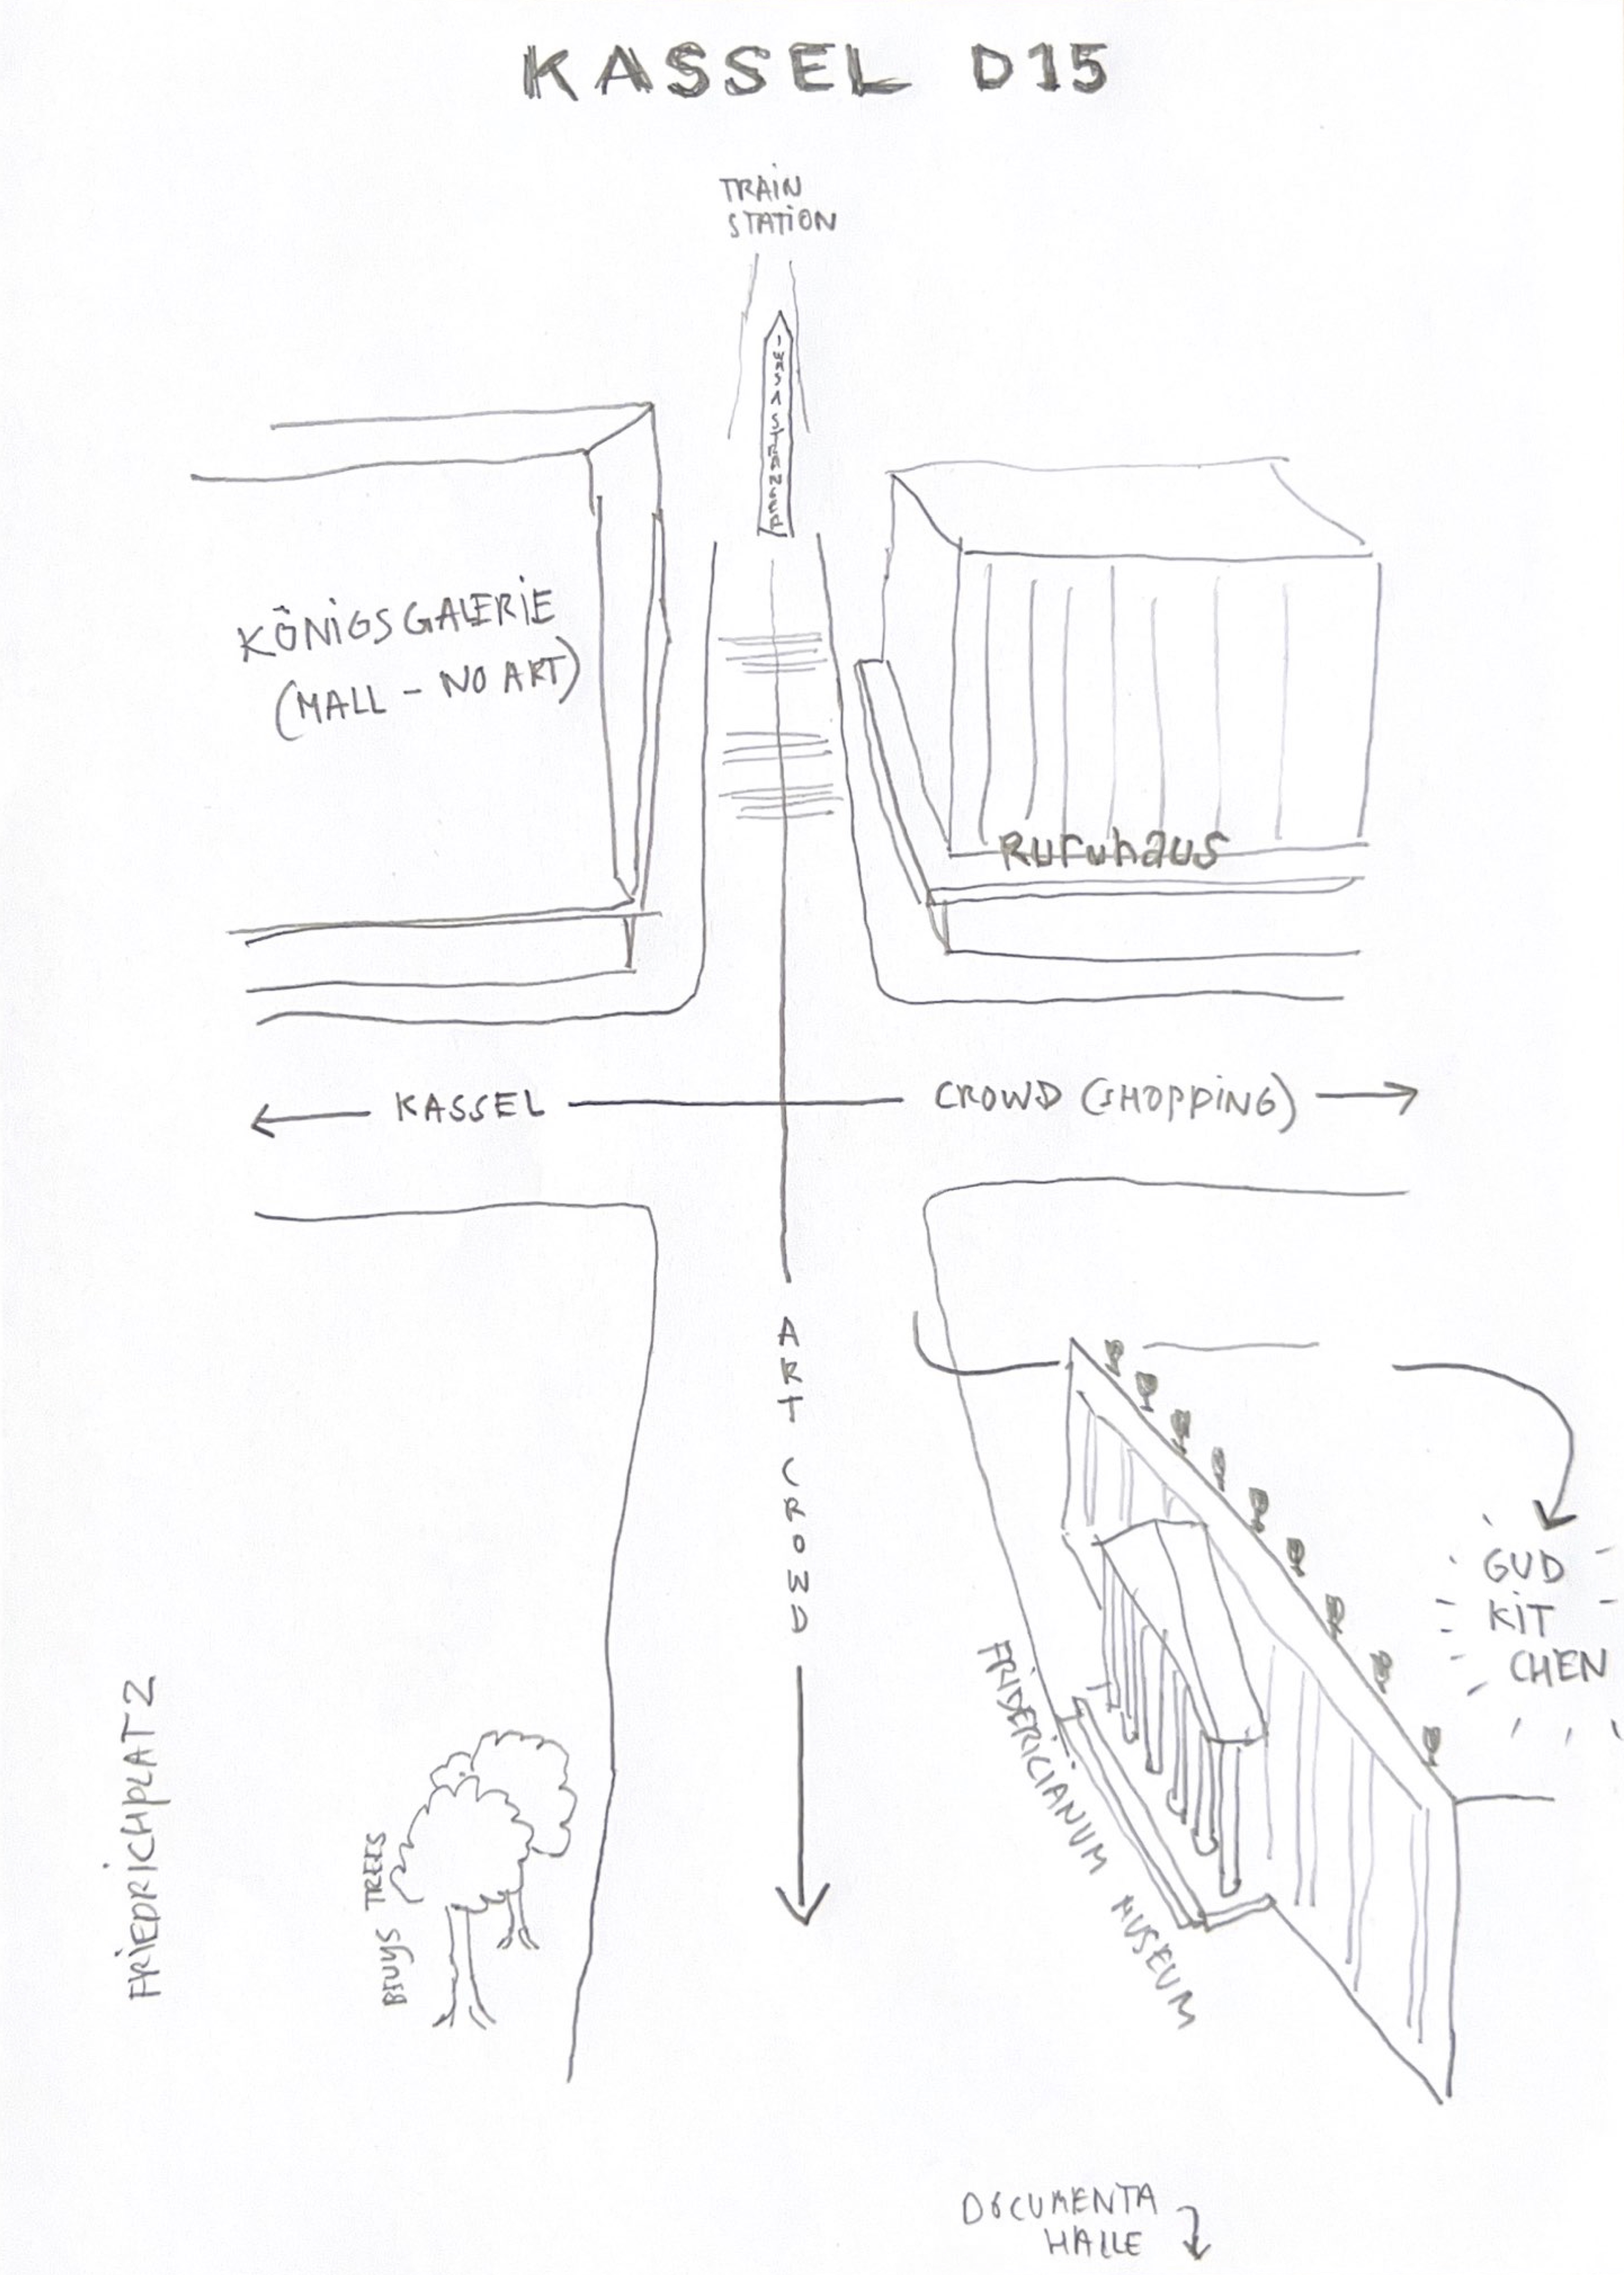 KASSEL D15
TRAIN
STATION
I WAS A STRANGER
KÖNIGSGALERIE
(MALL - NO ART)
Ruruhaus
KASSEL
CROWD (SHOPPING)
ART CROWD
GUD
KIT
CHEN
FRIDERICIANUM MUSEUM
FRIEDRICHPLATZ
BEUYS TREES
DOCUMENTA
HALLE